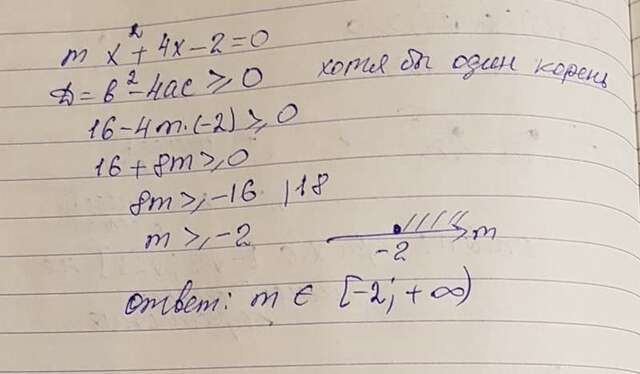 m x² + 4x - 2 = 0
D = b² - 4ac ⩾ 0 хотя бы один корень
16 - 4m·(-2) ⩾ 0
16 + 8m ⩾ 0
8m ⩾ -16 | :8
m ⩾ -2
-2 m
ответ: m ∈ [-2; +∞)